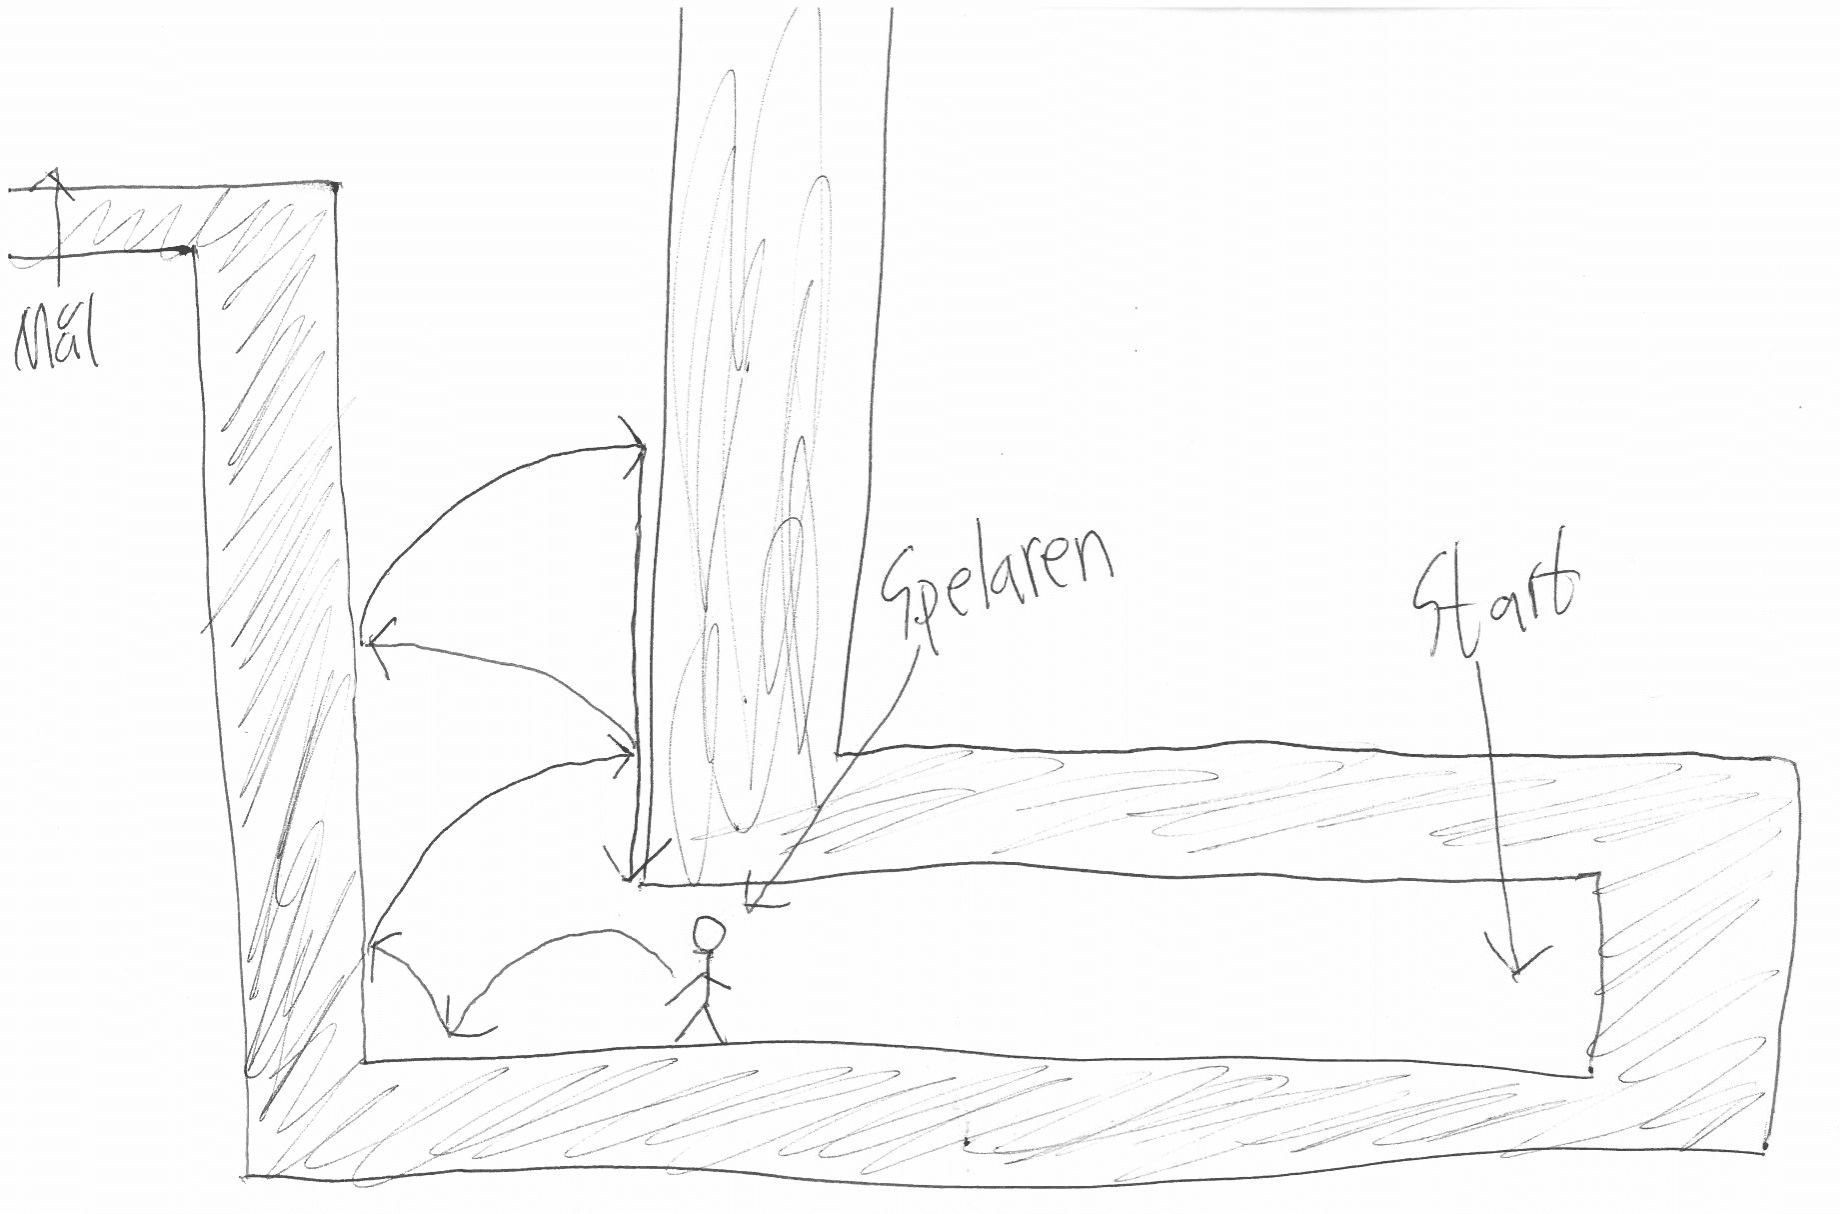 Mål
Spelaren
Start